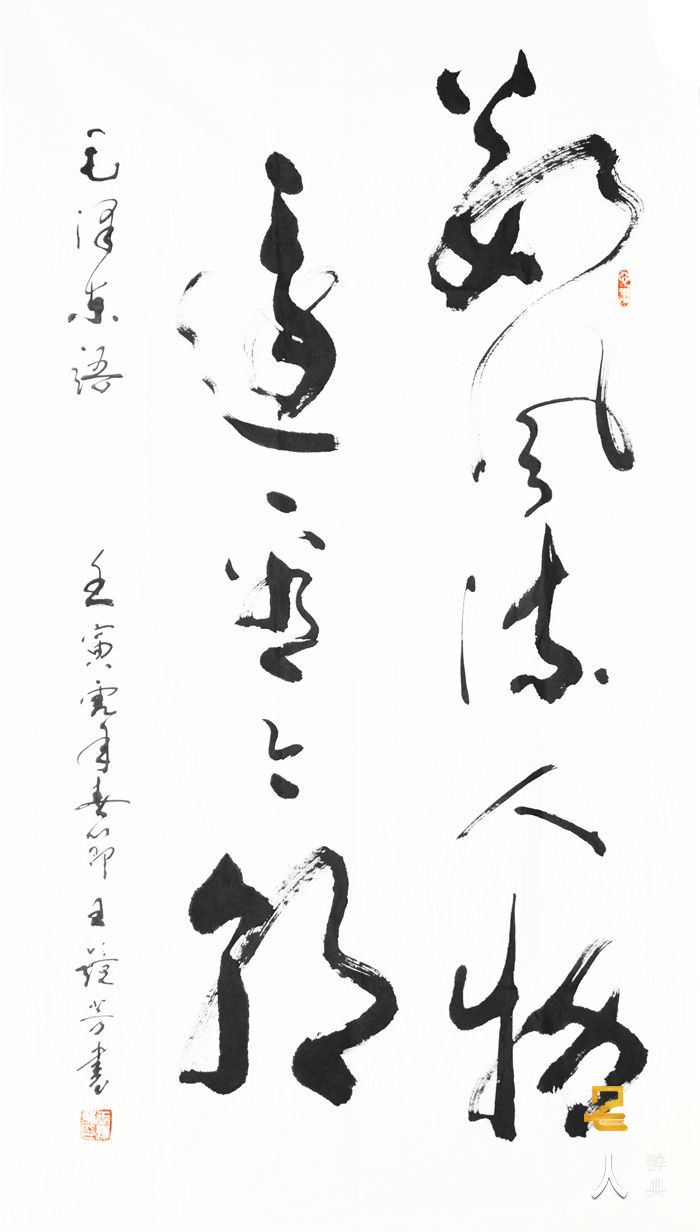 数风流人物
还看今朝
毛泽东语
壬寅虎年春节 王芳书
人
辞典